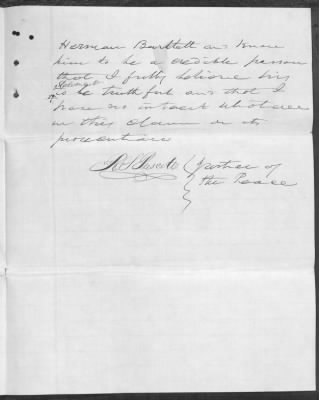 Herman Bartlett and know
him to be a credible person
that I fully believe his
Statement
to be truthful and that I
have no interest whatever
in this claim or its
prosecution
Justice of
the Peace